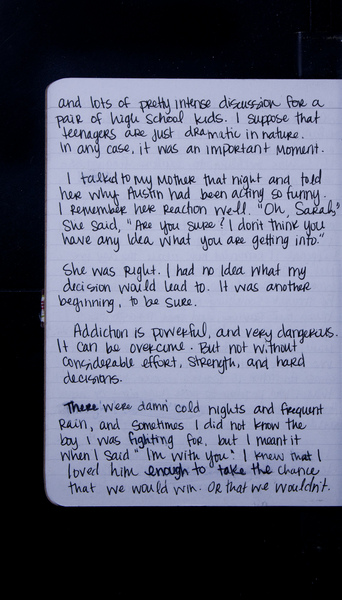 and lots of pretty intense discussion for a
pair of high school kids. I suppose that
teenagers are just dramatic in nature.
In any case, it was an important moment.
I talked to my Mother that night and told
her why Austin had been acting so funny.
I remember her reaction well. "Oh, Sarah,"
She said, "Are you sure? I don't think you
have any Idea what you are getting into."
She was right. I had no Idea what my
decision would lead to. It was another
beginning, to be sure.
Addiction is powerful, and very dangerous.
It can be overcome. But not without
considerable effort, strength, and hard
decisions.
There were damn cold nights and frequent
rain, and sometimes I did not know the
boy I was fighting for, but I meant it
when I said "I'm with you." I knew that I
loved him enough to take the chance
that we would win. Or that we wouldn't.